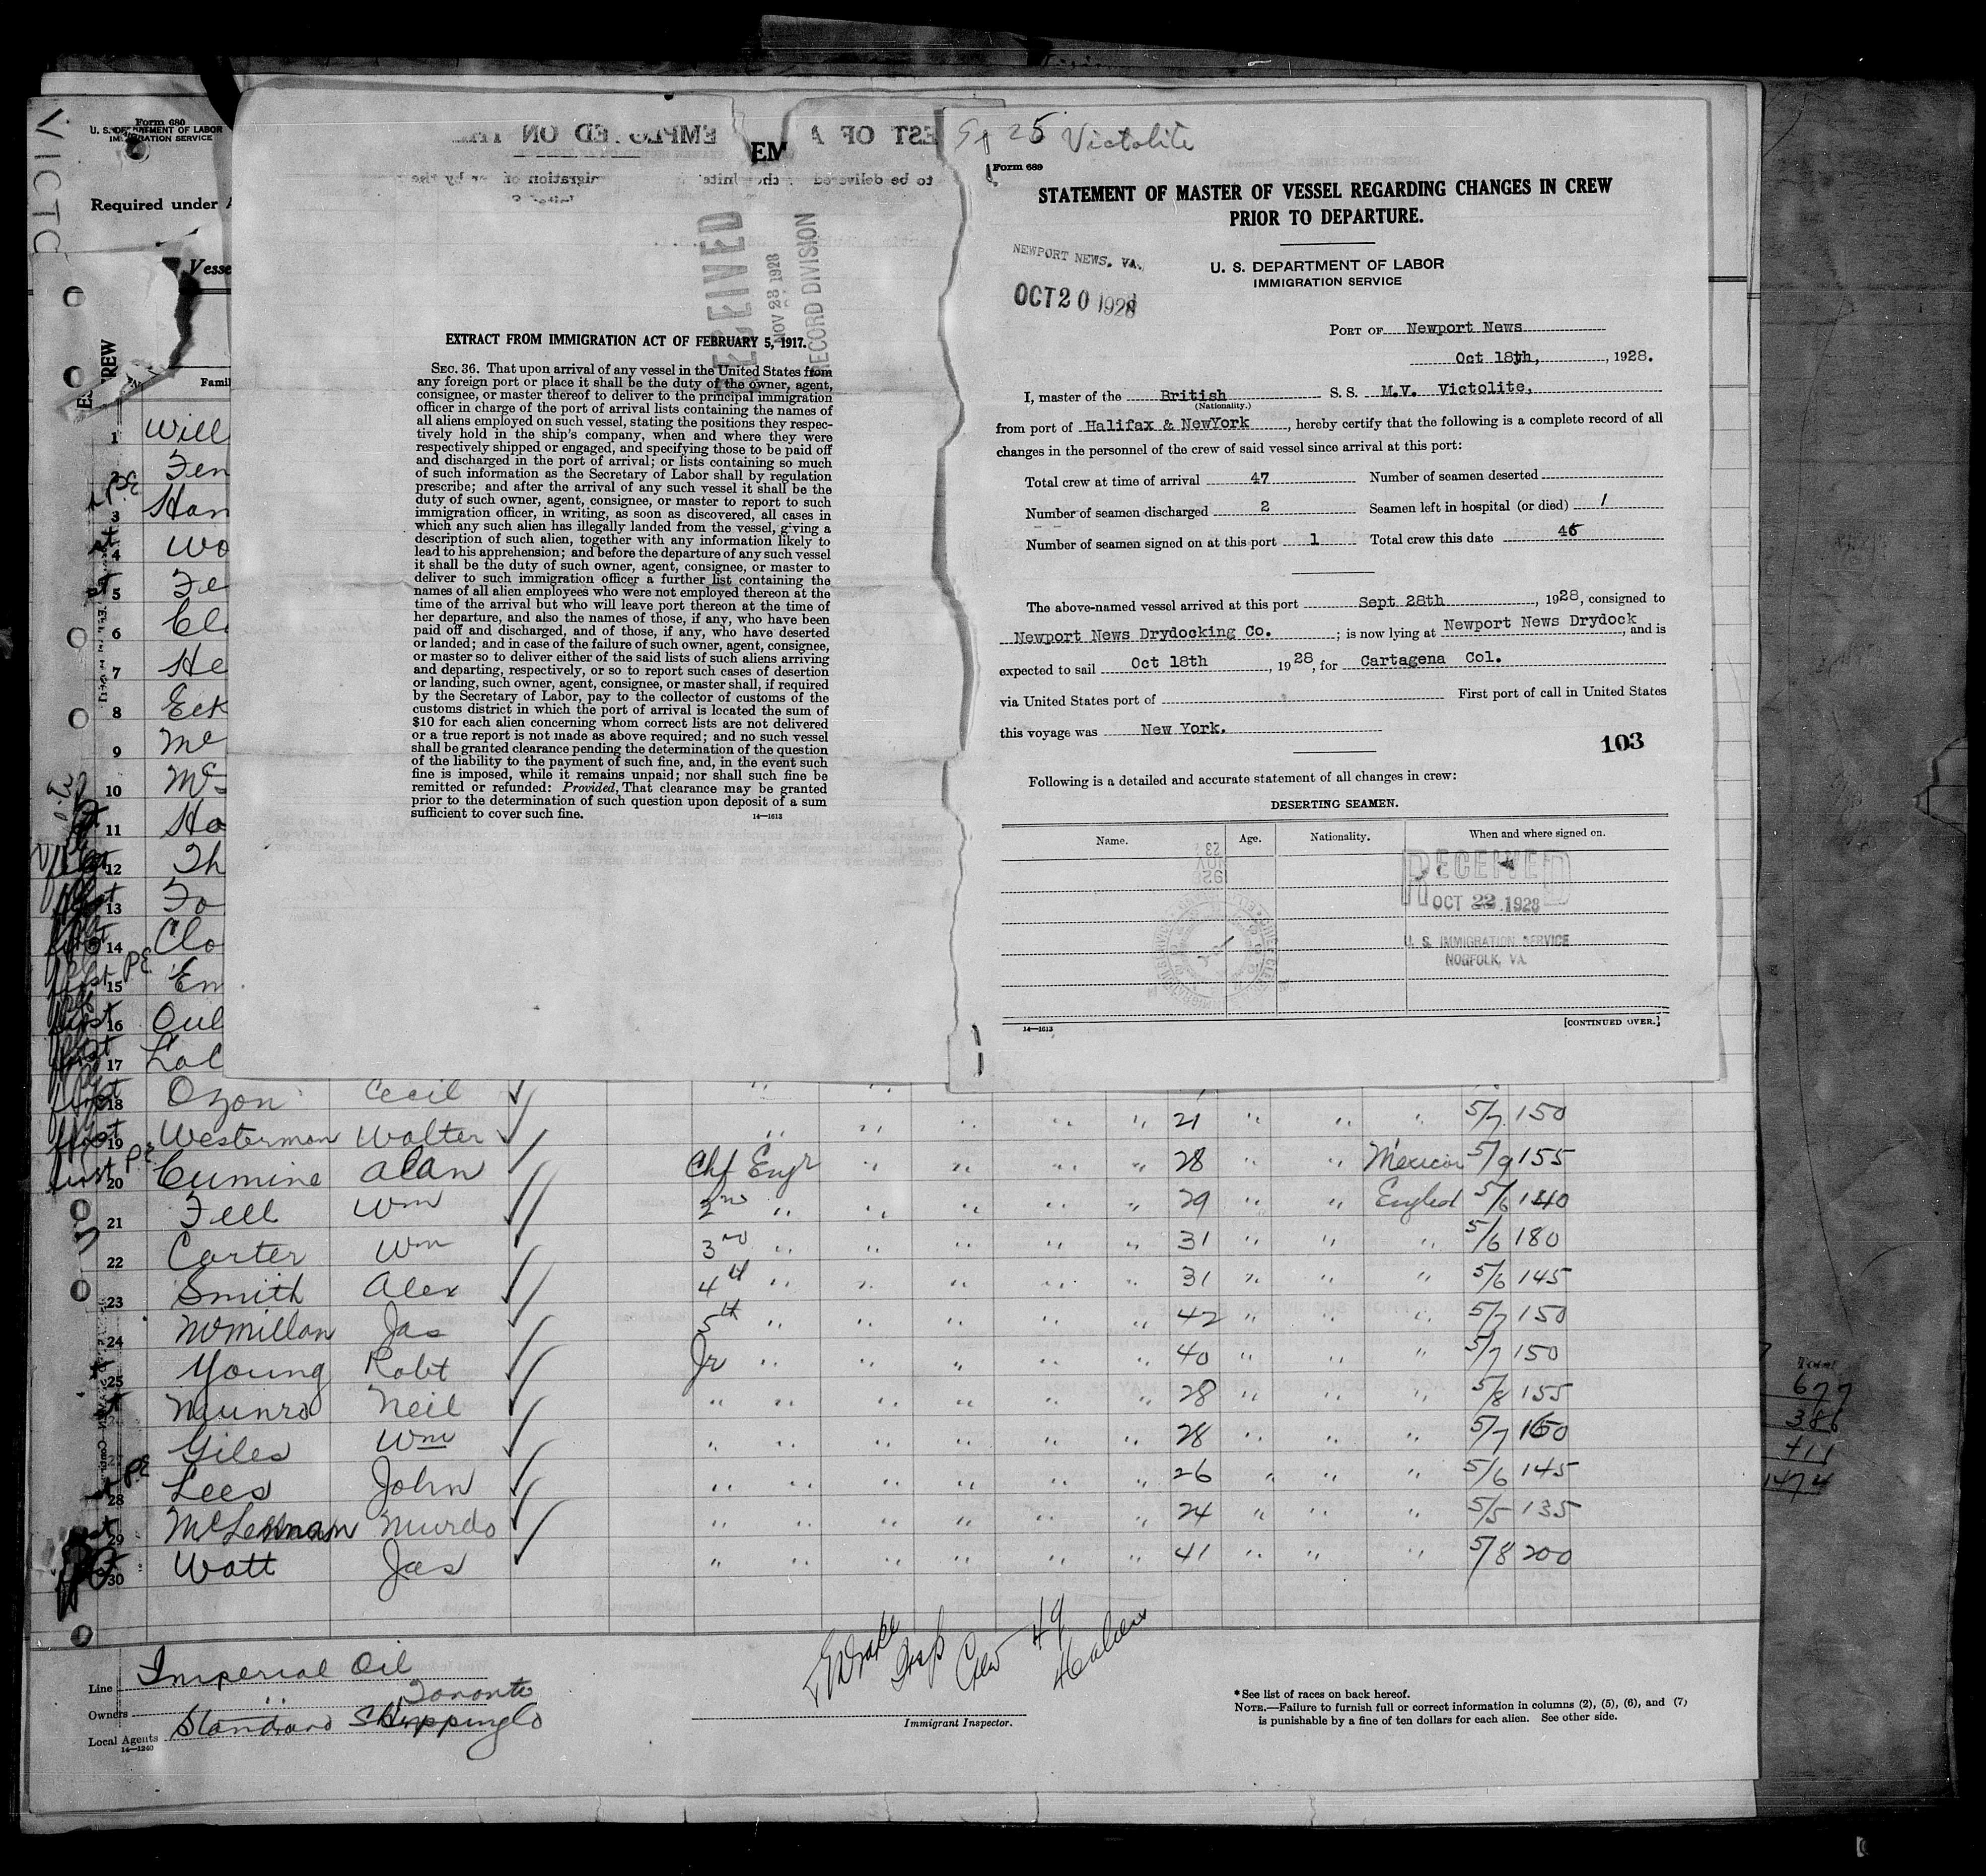 VICTO
Form 680
U. S. DEPARTMENT OF LABOR
IMMIGRATION SERVICE
Required under
Vesse
CREW
Famil
EM
RECEIVED
NOV 23 1928
RECORD DIVISION
EXTRACT FROM IMMIGRATION ACT OF FEBRUARY 5, 1917.
SEC. 36. That upon arrival of any vessel in the United States from
any foreign port or place it shall be the duty of the owner, agent,
consignee, or master thereof to deliver to the principal immigration
officer in charge of the port of arrival lists containing the names of
all aliens employed on such vessel, stating the positions they respec-
tively hold in the ship's company, when and where they were
respectively shipped or engaged, and specifying those to be paid off
and discharged in the port of arrival; or lists containing so much
of such information as the Secretary of Labor shall by regulation
prescribe; and after the arrival of any such vessel it shall be the
duty of such owner, agent, consignee, or master to report to such
immigration officer, in writing, as soon as discovered, all cases in
which any such alien has illegally landed from the vessel, giving a
description of such alien, together with any information likely to
lead to his apprehension; and before the departure of any such vessel
it shall be the duty of such owner, agent, consignee, or master to
deliver to such immigration officer a further list containing the
names of all alien employees who were not employed thereon at the
time of the arrival but who will leave port thereon at the time of
her departure, and also the names of those, if any, who have been
paid off and discharged, and of those, if any, who have deserted
or landed; and in case of the failure of such owner, agent, consignee,
or master so to deliver either of the said lists of such aliens arriving
and departing, respectively, or so to report such cases of desertion
or landing, such owner, agent, consignee, or master shall, if required
by the Secretary of Labor, pay to the collector of customs of the
customs district in which the port of arrival is located the sum of
$10 for each alien concerning whom correct lists are not delivered
or a true report is not made as above required; and no such vessel
shall be granted clearance pending the determination of the question
of the liability to the payment of such fine, and, in the event such
fine is imposed, while it remains unpaid; nor shall such fine be
remitted or refunded: Provided, That clearance may be granted
prior to the determination of such question upon deposit of a sum
sufficient to cover such fine.
14—1613
25 Victolite
Form 689
STATEMENT OF MASTER OF VESSEL REGARDING CHANGES IN CREW
PRIOR TO DEPARTURE.
NEWPORT NEWS, VA.
OCT 20 1928
U. S. DEPARTMENT OF LABOR
IMMIGRATION SERVICE
PORT OF Newport News
Oct 18th, , 1928.
I, master of the British S. S. M.V. Victolite,
(Nationality.)
from port of Halifax & NewYork , hereby certify that the following is a complete record of all
changes in the personnel of the crew of said vessel since arrival at this port:
Total crew at time of arrival 47 Number of seamen deserted
Number of seamen discharged 2 Seamen left in hospital (or died) 1
Number of seamen signed on at this port 1 Total crew this date 45
The above-named vessel arrived at this port Sept 28th , 1928, consigned to
Newport News Drydocking Co. ; is now lying at Newport News Drydock , and is
expected to sail Oct 18th , 1928, for Cartagena Col.
via United States port of First port of call in United States
this voyage was New York.
103
Following is a detailed and accurate statement of all changes in crew:
DESERTING SEAMEN.
Name. Age. Nationality. When and where signed on.
RECEIVED
OCT 22 1928
U. S. IMMIGRATION SERVICE
NORFOLK, VA.
14—1613 [CONTINUED OVER.]
1 Will
2 Fen
3 Han
4 Wo
5 Fe
6 Cl
7 He
8 Eck
9 Mc
10 Mc
11 Ho
12 Th
13 Fo
14 Clo
15 En
16 Oul
17 Lal
18 Ozon Cecil " " " " " 21 " " " 5/7 150
19 Westerman Walter
20 Cumine Alan Chf Engr " " " " 28 " " Mexico 5/9 155
21 Fell Wm 2nd " " " " " 29 " " England 5/6 140
22 Carter Wm 3rd " " " " " 31 " " " 5/6 180
23 Smith Alex 4th " " " " " 31 " " " 5/6 145
24 McMillan Jas 5th " " " " " 42 " " " 5/7 150
25 Young Robt Jr " " " " " 40 " " " 5/7 150
Munro Neil " " " " " " 28 " " " 5/8 155
27 Giles Wm " " " " " " 28 " " " 5/7 160
28 Lees John " " " " " " 26 " " " 5/6 145
29 McLennan Murdo " " " " " " 24 " " " 5/5 135
30 Watt Jas " " " " " " 41 " " " 5/8 200
677
386
411
1474
Line Imperial Oil
Owners " Toronto
Local Agents Standard Shipping Co
14—1240
Insp Crew 49
Immigrant Inspector.
* See list of races on back hereof.
NOTE.—Failure to furnish full or correct information in columns (2), (5), (6), and (7)
is punishable by a fine of ten dollars for each alien. See other side.